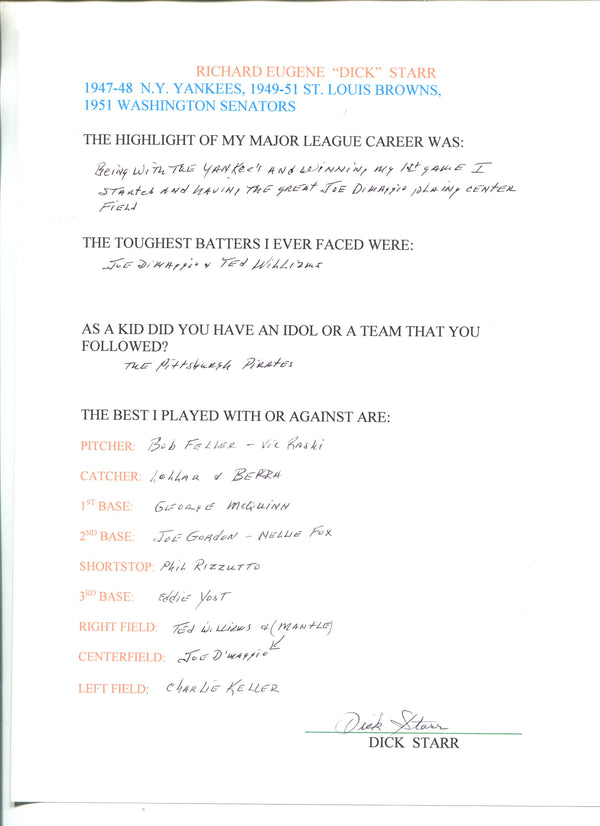 RICHARD EUGENE "DICK" STARR
1947-48 N.Y. YANKEES, 1949-51 ST. LOUIS BROWNS,
1951 WASHINGTON SENATORS
THE HIGHLIGHT OF MY MAJOR LEAGUE CAREER WAS:
Being with the Yankee's and winning my 1st game I
started and having the great Joe Dimaggio plaing center
field
THE TOUGHEST BATTERS I EVER FACED WERE:
Joe Dimaggio & Ted Williams
AS A KID DID YOU HAVE AN IDOL OR A TEAM THAT YOU
FOLLOWED?
The Pittsburgh Pirates
THE BEST I PLAYED WITH OR AGAINST ARE:
PITCHER: Bob Feller - Vic Raski
CATCHER: Lollar & Berra
1ST BASE: George McQuinn
2ND BASE: Joe Gordon - Nellie Fox
SHORTSTOP: Phil Rizzutto
3RD BASE: Eddie Yost
RIGHT FIELD: Ted Williams & (Mantle)
CENTERFIELD: Joe D'maggio
LEFT FIELD: Charlie Keller
Dick Starr
DICK STARR